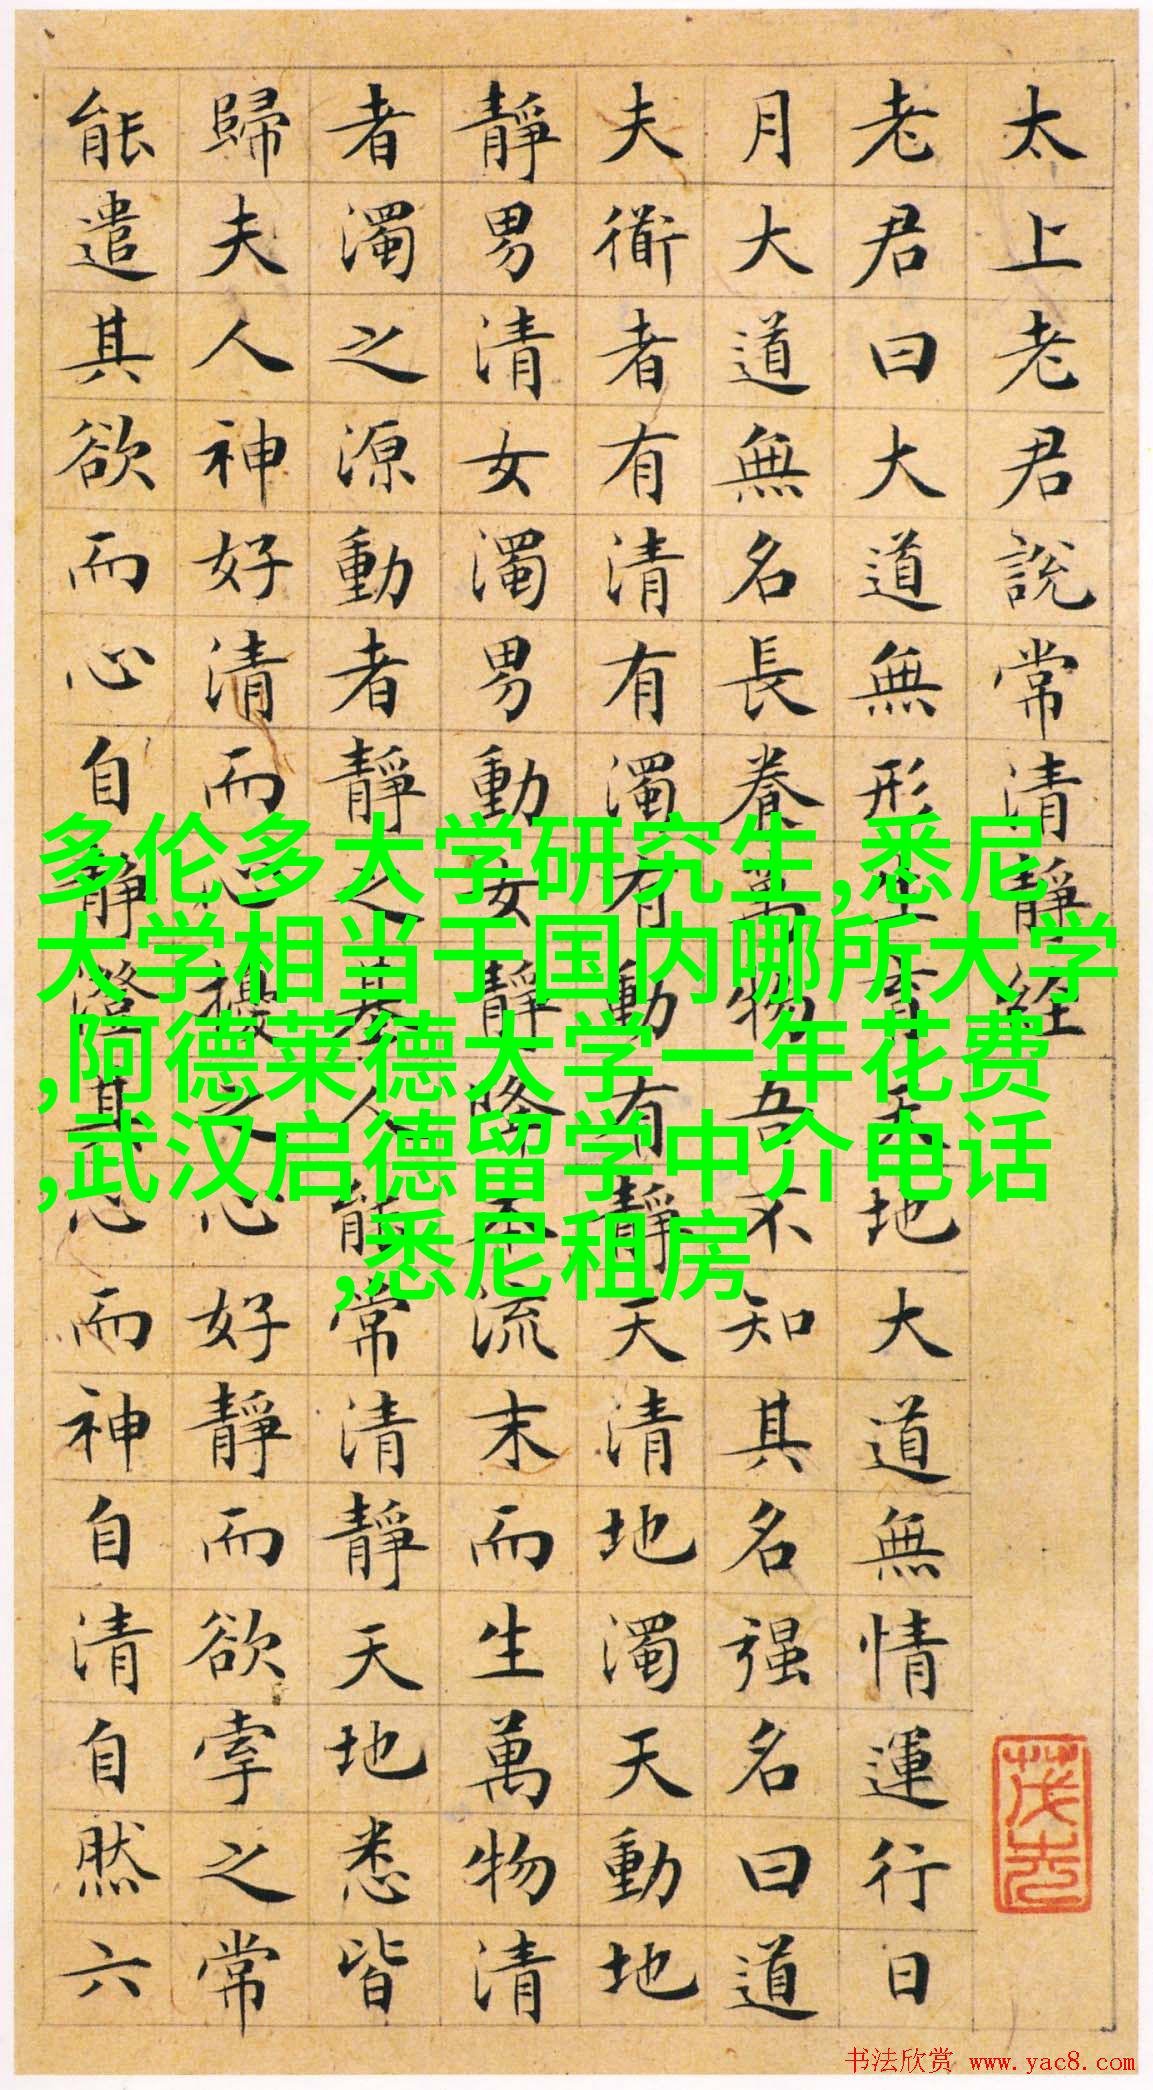 太上老君說常清靜經
老君曰大道無形生育天地大道無情運行日
月大道無名長養萬物吾不知其名强名曰道
夫衜者有清有濁有動有靜天清地濁天動地
靜男清女濁男動女靜降本流末而生萬物清
者濁之源動者靜之基人能常清靜天地悉皆
歸夫人神好清而心擾之心好靜而欲牽之常
能遣其欲而心自靜澄其心而神自清自然六
多伦多大学研究生,悉尼
大学相当于国内哪所大学
,阿德莱德大学一年花费
,武汉启德留学中介电话
,悉尼租房
书法欣赏 www.yac8.com